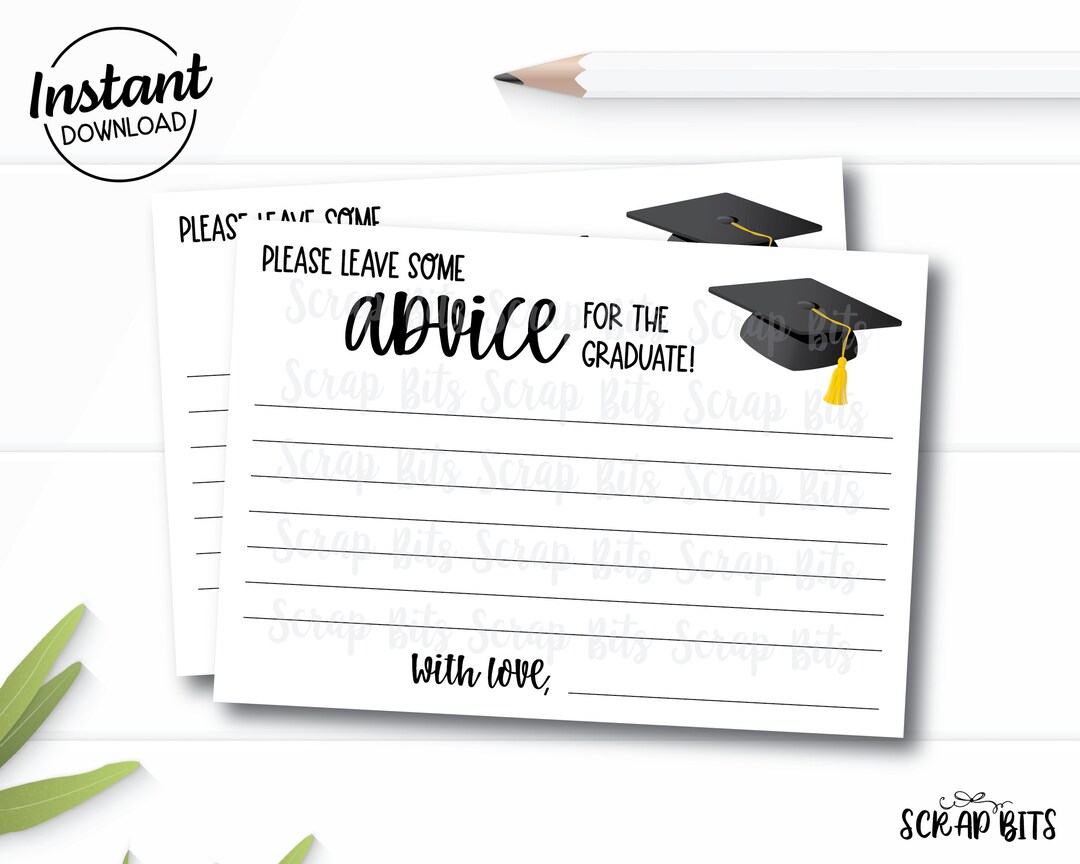 Instant
DOWNLOAD
PLEASE LEAVE SOME
PLEASE LEAVE SOME
advice FOR THE
GRADUATE!
Scrap Bits Scrap Bits Scrap Bits
Scrap Bits Scrap Bits Scrap Bits
Scrap Bits Scrap Bits Scrap Bits
Scrap Bits Scrap Bits Scrap Bits
Scrap Bits Scrap Bits Scrap Bits
with love,
SCRAP BITS